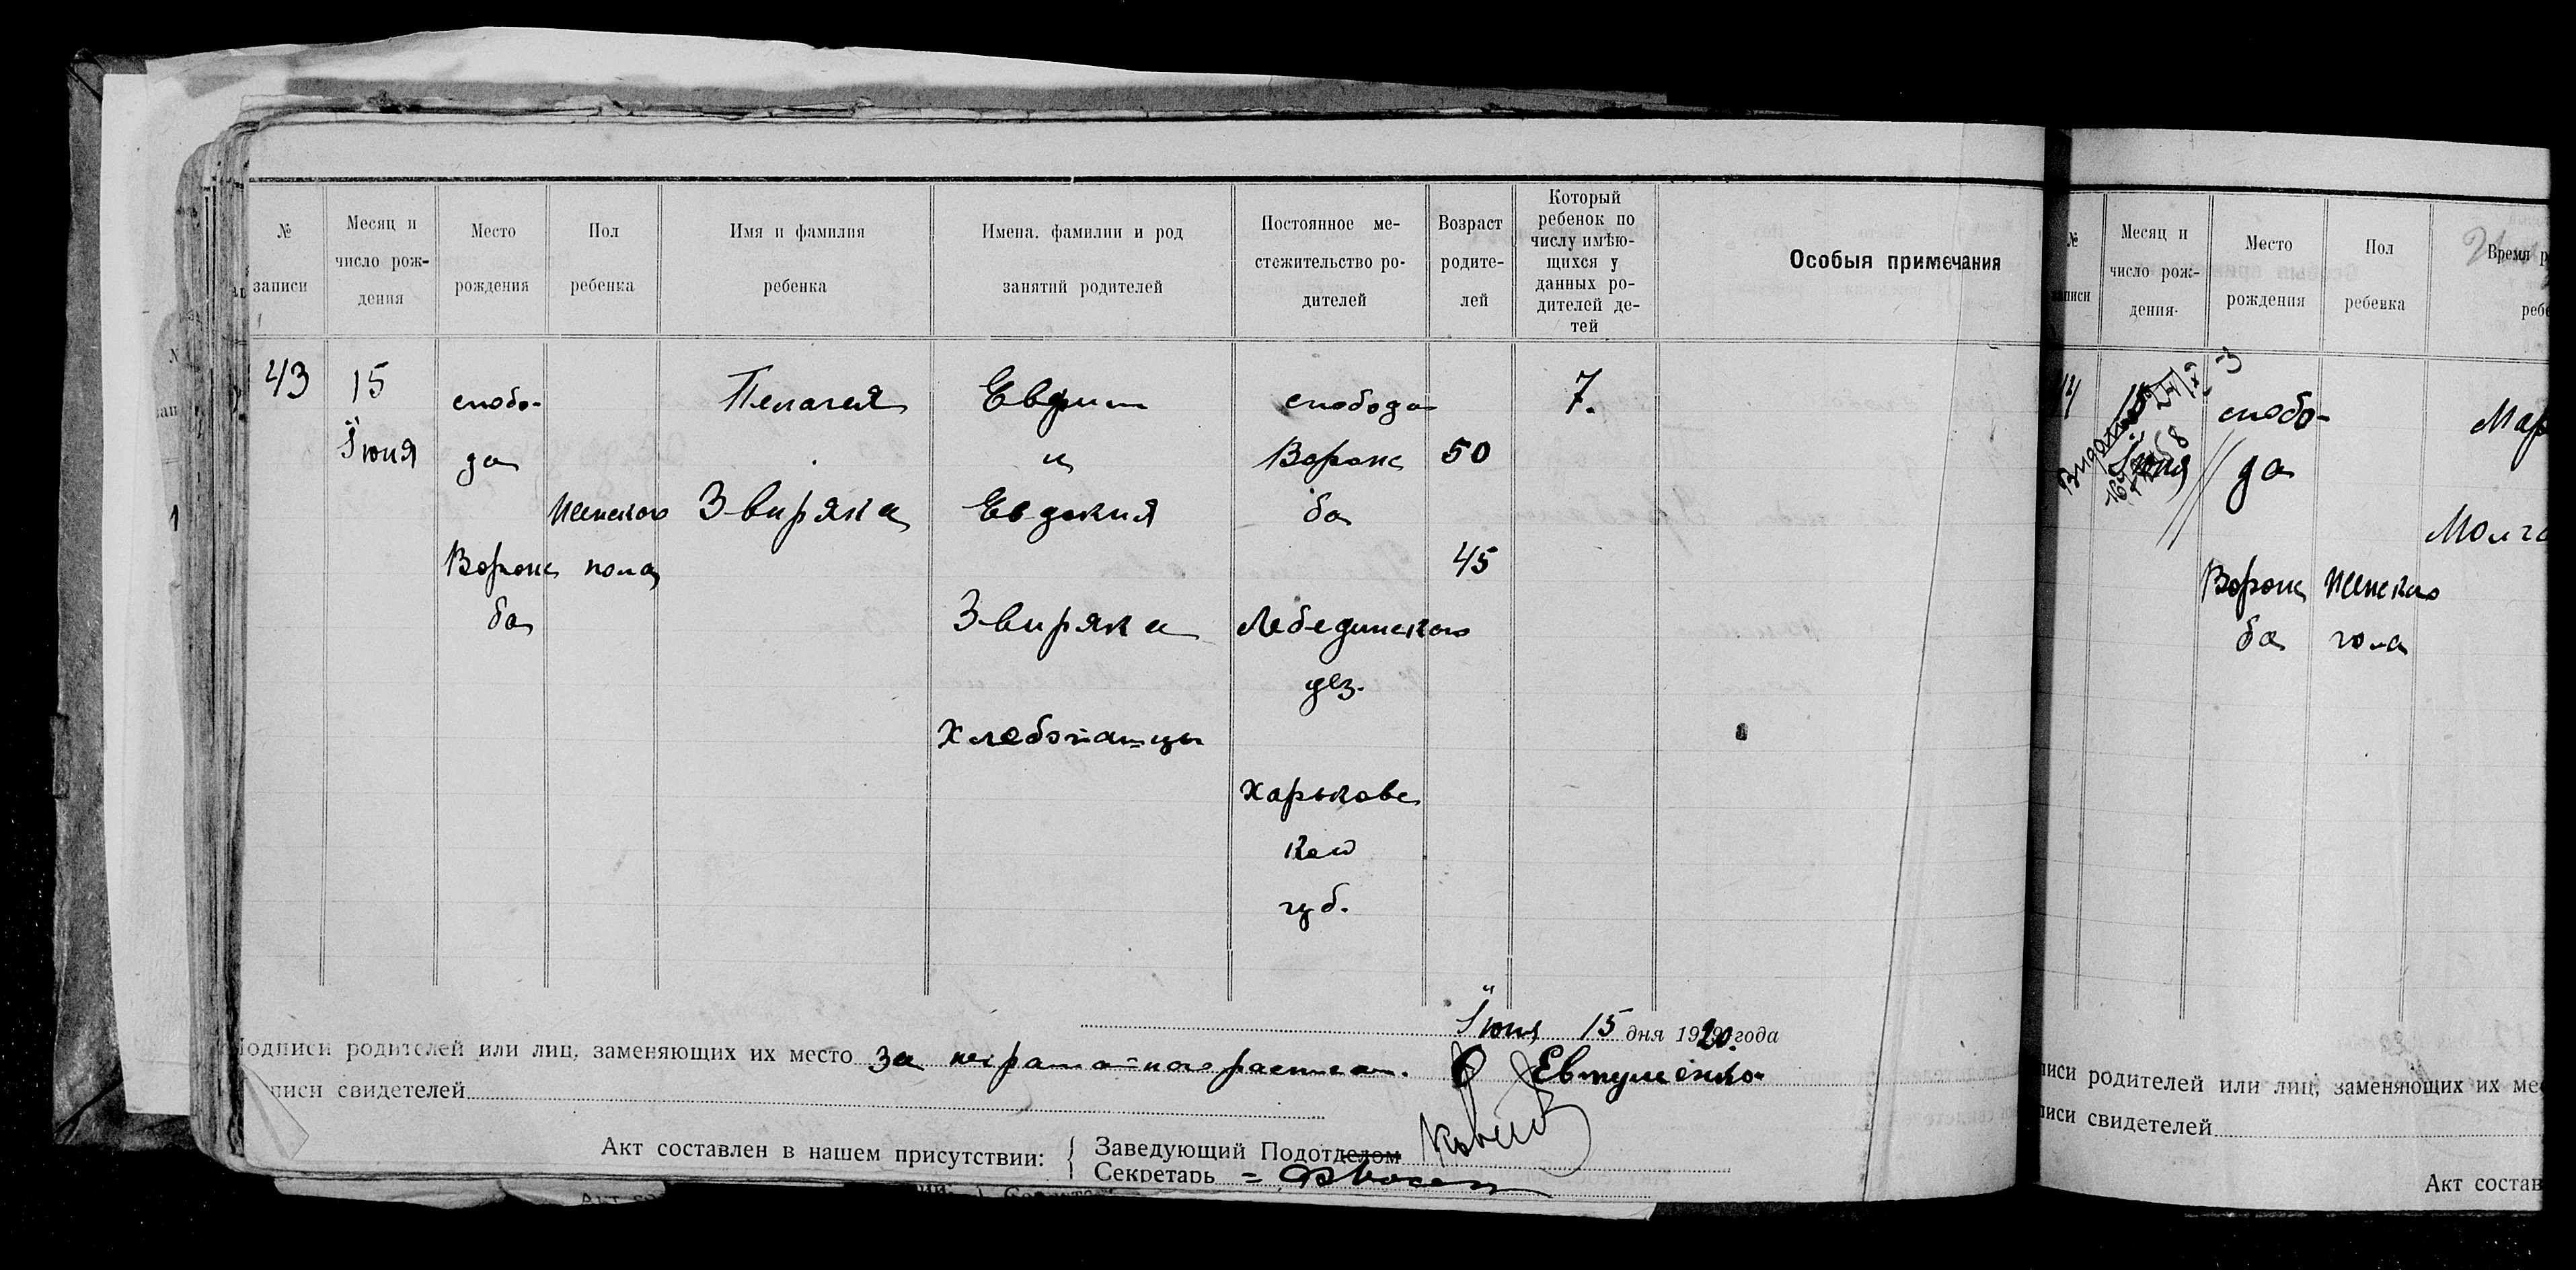 № записи
Месяц и число рождения
Место рождения
Пол ребенка
Имя и фамилия ребенка
Имена, фамилии и род занятий родителей
Постоянное местожительство родителей
Возраст родителей
Который ребенок по числу имѣющихся у данных родителей детей
Особыя примечания
43
15
Їюня
слобо-
да
Ворож
ба
Женского
пола
Пелагея
Звиряка
Евфим
и
Евдокия
Звиряка
Хлебопашцы
слобода
Ворож
ба
Лебединского
уез.
Харьковс
кой
губ.
50
45
7.
Їюня 15 дня 1920 года
Подписи родителей или лиц, заменяющих их место за неграмотного расписал. Евтушенко
писи свидетелей
Акт составлен в нашем присутствии:
Заведующий Подотделом
Секретарь
№ записи
Месяц и число рождения
Место рождения
Пол ребенка
Время р
ребе
Їюня
слобо-
да
Ворож
ба
Женского
пола
Мар
Молча
писи родителей или лиц, заменяющих их ме
писи свидетелей
Акт состав